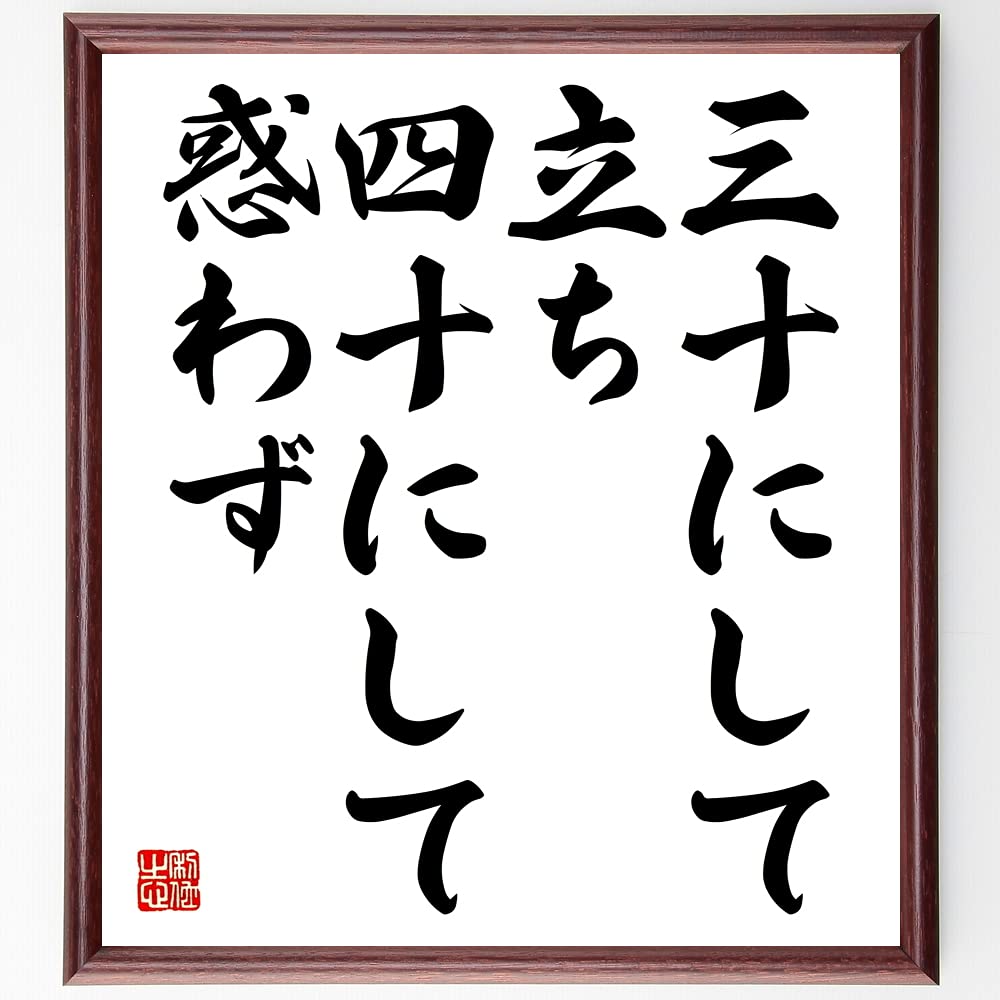 三十にして
立ち
四十にして
惑わず